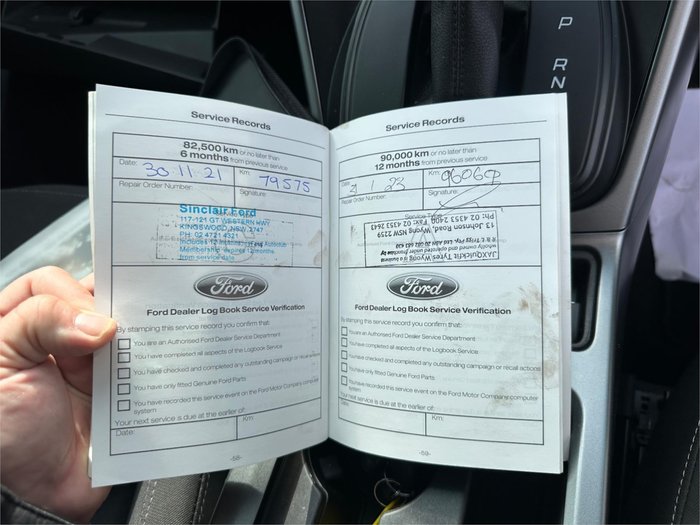 P
R
N
Service Records
82,500 km or no later than
6 months from previous service
Date: 30 11 21
Km: 79575
Repair Order Number:
Signature:
Sinclair Ford
117-121 GT WESTERN HWY
KINGSWOOD NSW 2747
PH: 02 4721 4321
Includes 12
Membership expires 12 months
from service date
Ford
Ford Dealer Log Book Service Verification
By stamping this service record you confirm that:
You are an Authorised Ford Dealer Service Department
You have completed all aspects of the Logbook Service
You have checked and completed any outstanding campaign or recall actions
You have only fitted Genuine Ford Parts
You have recorded this service event on the Ford Motor Company computer
system
Your next service is due at the earlier of:
Date:
Km:
-58-
Service Records
90,000 km or no later than
12 months from previous service
Date: 1 23
Km:
Repair Order Number:
Signature:
JAXQuickfit Tyres Wyong
wholly owned and operated under franchise by
13 Johnson Road, Wyong NSW 2259
Ph 02 4353 2400 Fax: 02 4353 2643
Ford
Ford Dealer Log Book Service Verification
By stamping this service record you confirm that:
You are an Authorised Ford Dealer Service Department
You have completed all aspects of the Logbook Service
You have checked and completed any outstanding campaign or recall actions
You have only fitted Genuine Ford Parts
You have recorded this service event on the Ford Motor Company computer
system
Your next service is due at the earlier of:
Date:
Km:
-59-